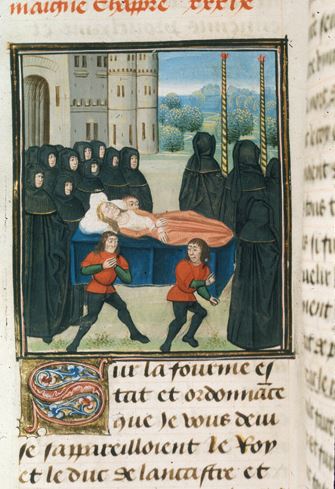 Chappre xxxix
Sur la fourme es
tat et ordonnāce
que Je vous devi
se sappareilloient le Roy
et le duc de lancastre et